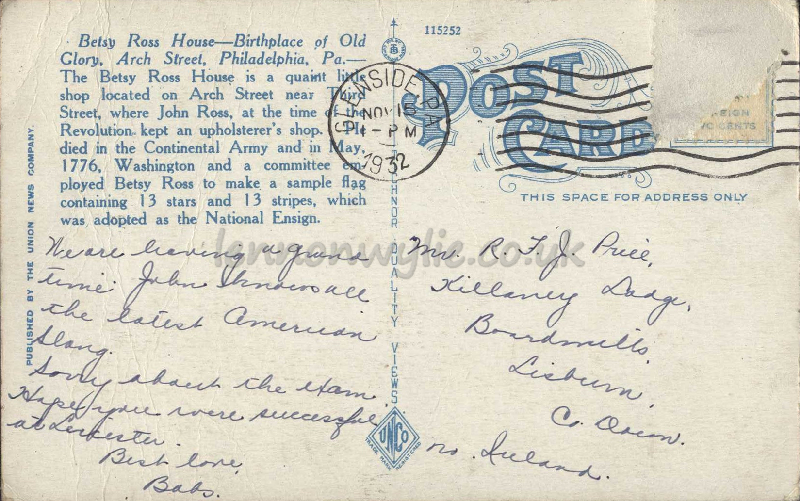 Betsy Ross House—Birthplace of Old
Glory, Arch Street, Philadelphia, Pa.—
The Betsy Ross House is a quaint little
shop located on Arch Street near Third
Street, where John Ross, at the time of the
Revolution kept an upholsterer's shop. He
died in the Continental Army and in May,
1776, Washington and a committee em-
ployed Betsy Ross to make a sample flag
containing 13 stars and 13 stripes, which
was adopted as the National Ensign.
PUBLISHED BY THE UNION NEWS COMPANY.
We are having a grand
time. John knows all
the latest American
slang.
Sorry about the exam.
Hope you were successful
at Leicester.
Best love,
Babs.
115252
TECHNOR QUALITY VIEWS
UNCO
TRADE MARK REGISTERED
GLENSIDE, PA.
NOV 15
4 - PM
1932
POST
CARD
THIS SPACE FOR ADDRESS ONLY
Mr. R. F. J. Price,
Killaney Lodge,
Boardmills,
Lisburn,
Co. Down.
no. Ireland.
lennonwylie.co.uk